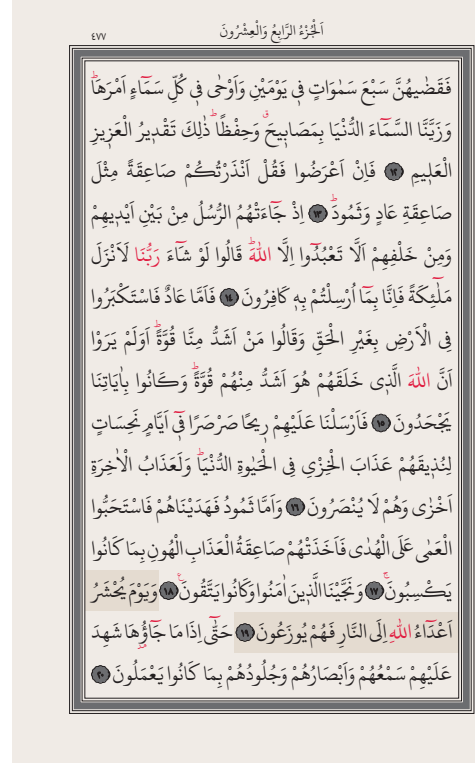 اَلْجُزْءُ الرَّابِعُ وَالْعِشْرُونَ
٤٧٧
فَقَضٰيهُنَّ سَبْعَ سَمٰوَاتٍ ف۪ي يَوْمَيْنِ وَاَوْحٰى ف۪ي كُلِّ سَمَٓاءٍ اَمْرَهَاۜ
وَزَيَّنَّا السَّمَٓاءَ الدُّنْيَا بِمَصَاب۪يحَۗ وَحِفْظًاۜ ذٰلِكَ تَقْد۪يرُ الْعَز۪يزِ
الْعَل۪يمِ ﴿١٢﴾ فَاِنْ اَعْرَضُوا فَقُلْ اَنْذَرْتُكُمْ صَاعِقَةً مِثْلَ
صَاعِقَةِ عَادٍ وَثَمُودَۜ ﴿١٣﴾ اِذْ جَٓاءَتْهُمُ الرُّسُلُ مِنْ بَيْنِ اَيْد۪يهِمْ
وَمِنْ خَلْفِهِمْ اَلَّا تَعْبُدُٓوا اِلَّا اللّٰهَۜ قَالُوا لَوْ شَٓاءَ رَبُّنَا لَاَنْزَلَ
مَلٰٓئِكَةً فَاِنَّا بِمَٓا اُرْسِلْتُمْ بِه۪ كَافِرُونَ ﴿١٤﴾ فَاَمَّا عَادٌ فَاسْتَكْبَرُوا
فِي الْاَرْضِ بِغَيْرِ الْحَقِّ وَقَالُوا مَنْ اَشَدُّ مِنَّا قُوَّةًۜ اَوَلَمْ يَرَوْا
اَنَّ اللّٰهَ الَّذ۪ي خَلَقَهُمْ هُوَ اَشَدُّ مِنْهُمْ قُوَّةًۜ وَكَانُوا بِاٰيَاتِنَا
يَجْحَدُونَ ﴿١٥﴾ فَاَرْسَلْنَا عَلَيْهِمْ ر۪يحًا صَرْصَرًا ف۪ٓي اَيَّامٍ نَحِسَاتٍ
لِنُذ۪يقَهُمْ عَذَابَ الْخِزْيِ فِي الْحَيٰوةِ الدُّنْيَاۜ وَلَعَذَابُ الْاٰخِرَةِ
اَخْزٰى وَهُمْ لَا يُنْصَرُونَ ﴿١٦﴾ وَاَمَّا ثَمُودُ فَهَدَيْنَاهُمْ فَاسْتَحَبُّوا
الْعَمٰى عَلَى الْهُدٰى فَاَخَذَتْهُمْ صَاعِقَةُ الْعَذَابِ الْهُونِ بِمَا كَانُوا
يَكْسِبُونَۚ ﴿١٧﴾ وَنَجَّيْنَا الَّذ۪ينَ اٰمَنُوا وَكَانُوا يَتَّقُونَ۟ ﴿١٨﴾ وَيَوْمَ يُحْشَرُ
اَعْدَٓاءُ اللّٰهِ اِلَى النَّارِ فَهُمْ يُوزَعُونَ ﴿١٩﴾ حَتّٰٓى اِذَا مَا جَٓاؤُ۫هَا شَهِدَ
عَلَيْهِمْ سَمْعُهُمْ وَاَبْصَارُهُمْ وَجُلُودُهُمْ بِمَا كَانُوا يَعْمَلُونَ ﴿٢٠﴾